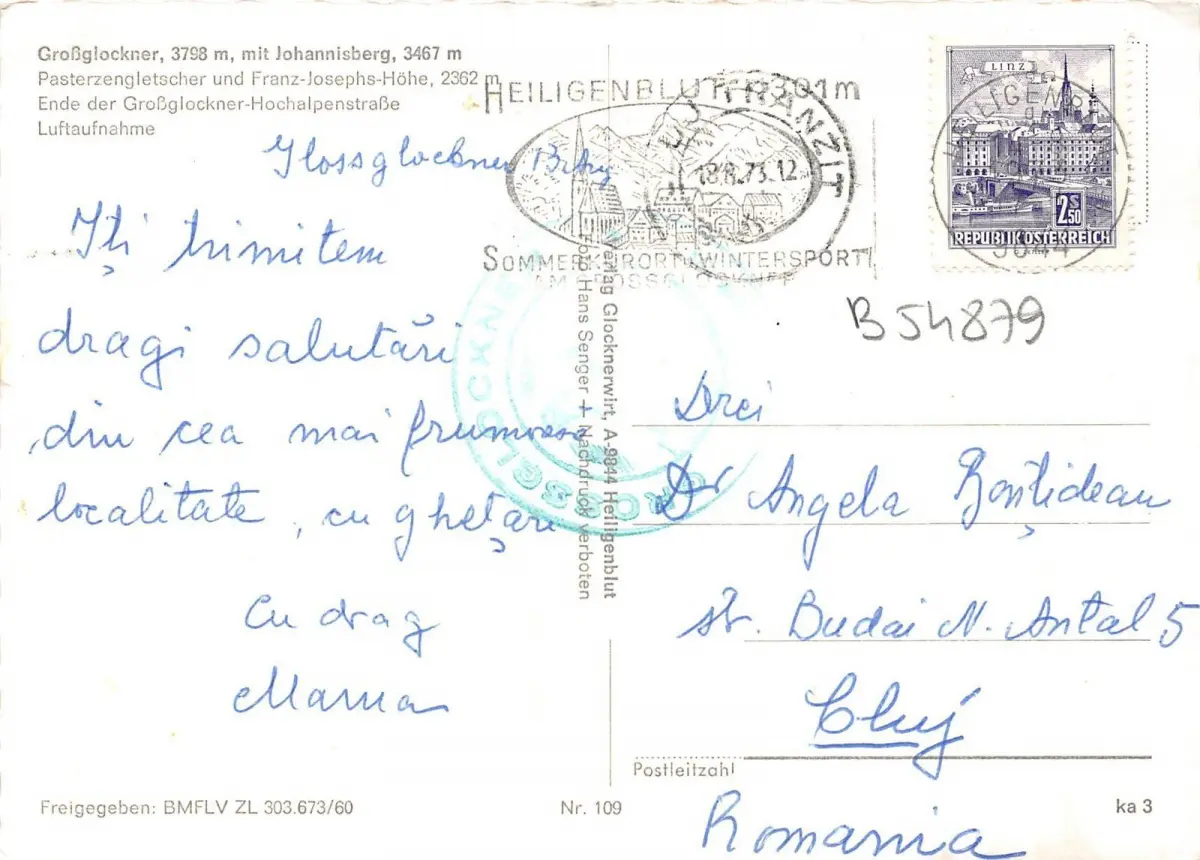 Großglockner, 3798 m, mit Johannisberg, 3467 m
Pasterzengletscher und Franz-Josephs-Höhe, 2362 m
Ende der Großglockner-Hochalpenstraße
Luftaufnahme
Glossglockner
Iți trimitem
dragi salutări
din cea mai frumoasă
localitate, cu ghețari
Cu drag
Mama
Freigegeben: BMFLV ZL 303.673/60
Verlag Glocknerwirt, A-9844 Heiligenblut
Foto Hans Senger + Nachdruck verboten
Nr. 109
HEILIGENBLUT 1301m
CLUJ TRANZIT
18.8.73.12
SOMMERKURORT WINTERSPORT
AM GROSSGLOCKNER
GROSSGLOCKNER
LINZ
S
2.50
REPUBLIK ÖSTERREICH
HEILIGENBLUT
9844
B 54879
Drei
Dr Angela Bonțideanu
str. Budai N. Antal 5
Cluj
Postleitzahl
Romania
ka 3